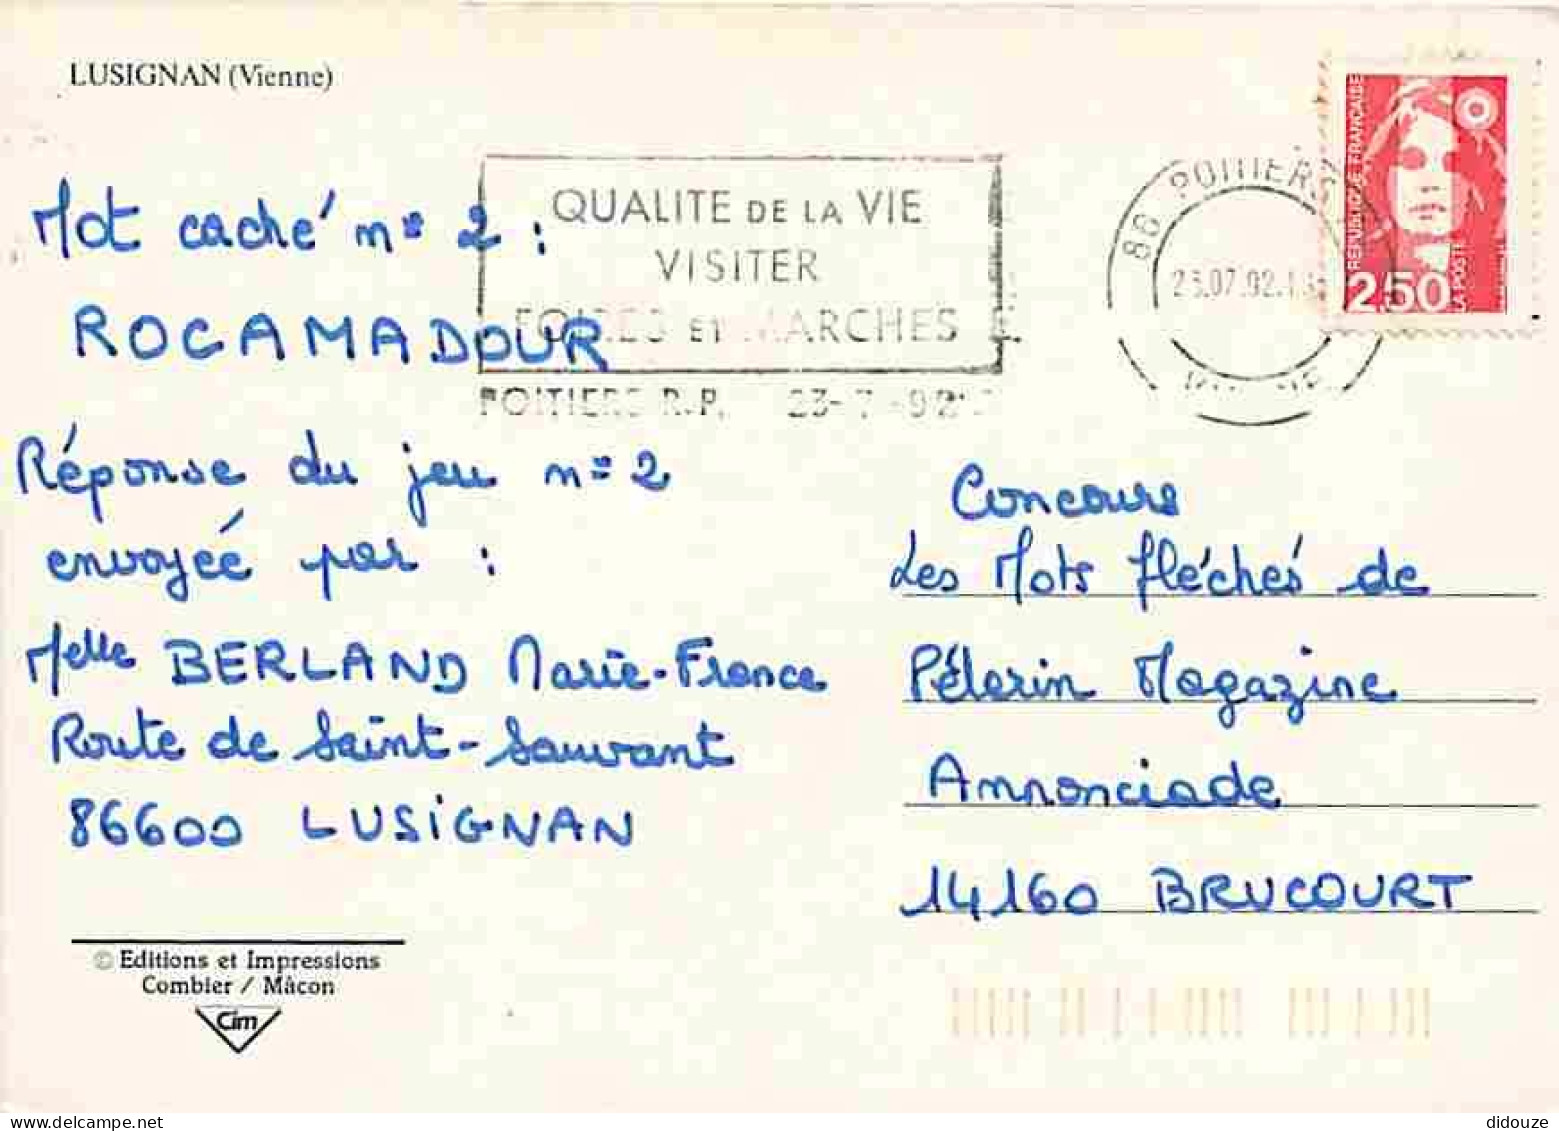 LUSIGNAN (Vienne)
QUALITE DE LA VIE
VISITER
FOIRES ET MARCHES
POITIERS R.P. 23-7-92
86 POITIERS
23.07.92
REPUBLIQUE FRANÇAISE
2,50
LA POSTE
Mot caché n° 2 :
ROCAMADOUR
Réponse du jeu n° 2
envoyée par :
Melle BERLAND Marie-France
Route de Saint-Sauvant
86600 LUSIGNAN
Concours
Les Mots fléchés de
Pélerin Magazine
Annonciade
14160 BRUCOURT
© Editions et Impressions
Combier / Mâcon
Cim
didouze